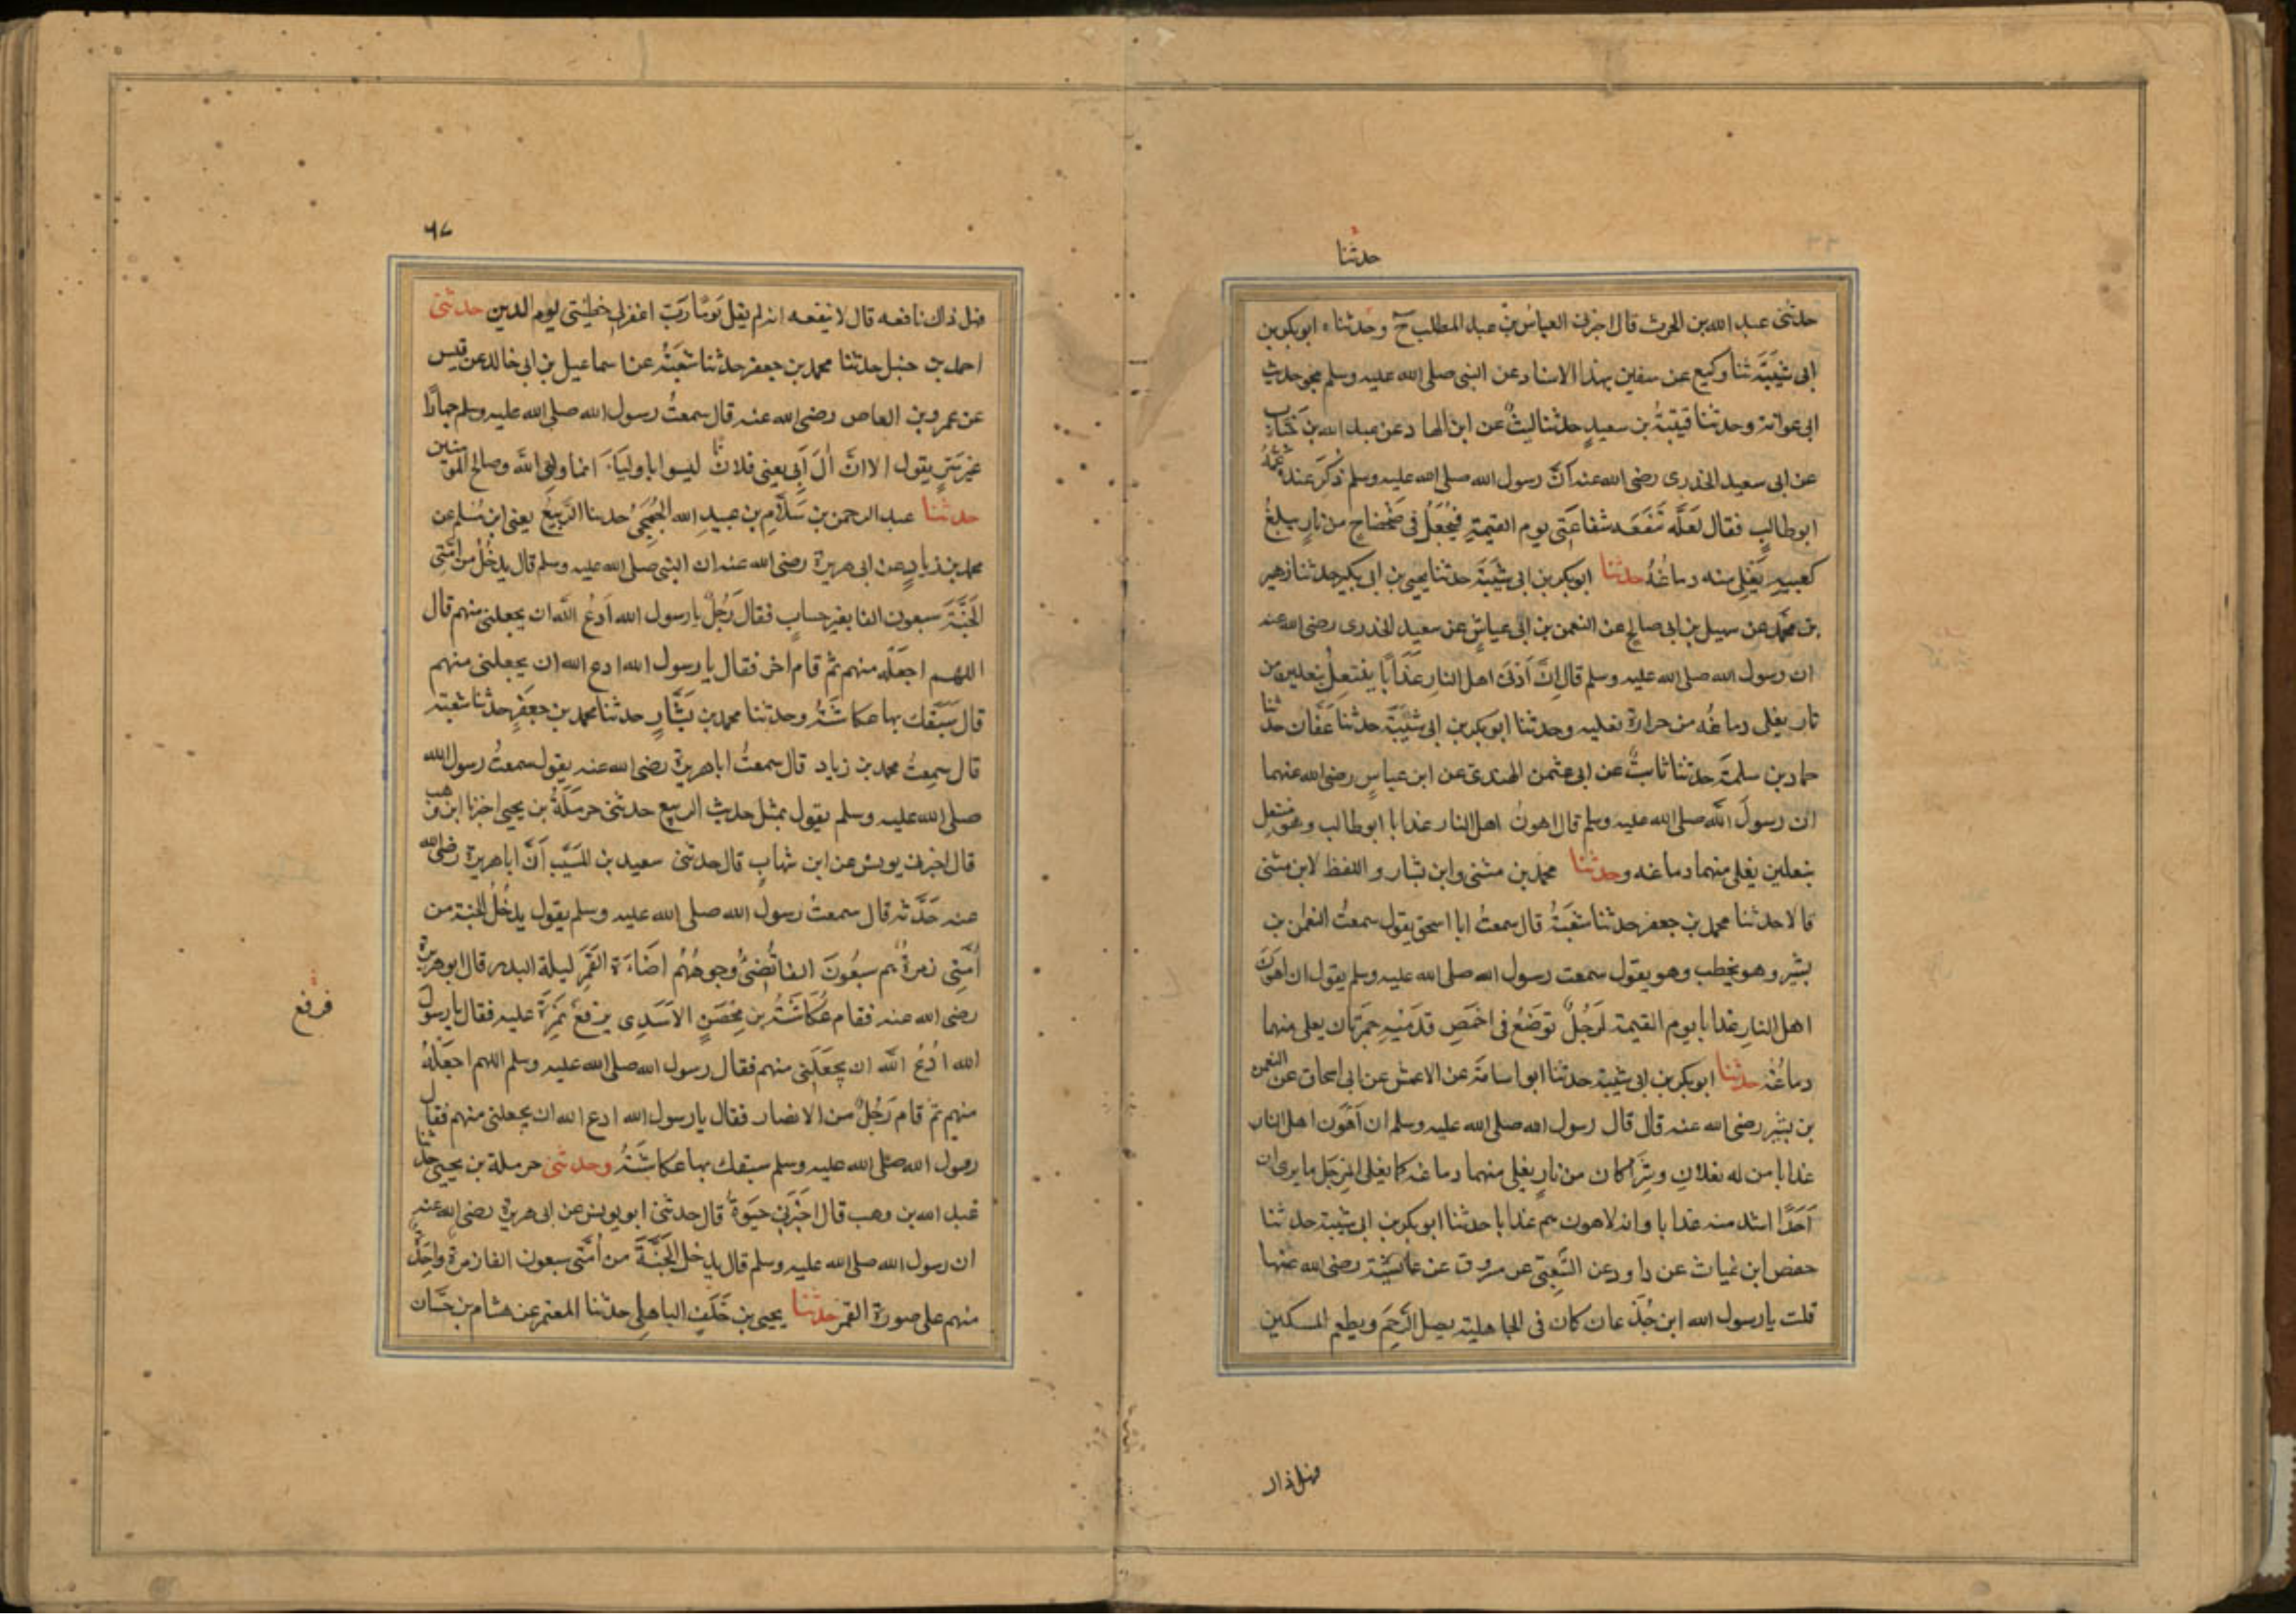 حدثنا
حدثنى عبد الله بن الحرث قال اخبرنى العباس بن عبد المطلب ح وحدثناه ابو بكر بن
ابى شَيْبَةَ ثنا وكيع عن سفين بهذا الاسناد عن النبى صلى الله عليه وسلم بنحو حديث
ابى عوانة وحدثنا قتيبةُ بن سعيدٍ حدثنا ليثٌ عن ابن الهاد عن عبد الله بن خَبَّابٍ
عن ابى سعيد الخدرى رضى الله عنه انَّ رسول الله صلى الله عليه وسلم ذُكرَ عنده عَمُّهُ
ابو طالبٍ فقال لعَلَّه تَنفَعَه شفاعَتى يوم القيمةِ فيُجْعَلُ فى ضَحْضَاحٍ من نارٍ يبلغُ
كعبيهِ يَغْلِى منه دماغُهُ حدثنا ابو بكر بن ابى شَيْبَةَ حدثنا يحيى بن ابى بكير حدثنا زهير
بن محمَّد عن سهيل بن ابى صالحٍ عن النعمن بن ابى عياشٍ عن سعيد الخدرى رضى الله عنه
ان رسول الله صلى الله عليه وسلم قال اِنَّ اَدْنَى اهل النارِ عَذَابًا ينتعِلُ بنعلين من
نار يغلى دماغُه من حرارة نعليه وحدثنا ابو بكر بن ابى شَيْبَةَ حدثنا عَفَّان حدثنا
حماد بن سلمةَ حدثنا ثابتٌ عن ابى عثمن الهندى عن ابن عباسٍ رضى الله عنهما
ان رسولَ الله صلى الله عليه وسلم قال اهونُ اهل النار عذابا ابو طالب وهو منتعل
بنعلين يغلى منهما دماغه وحدثنا محمد بن مثنى وابن بشار واللفظ لابن مثنى
قالا حدثنا محمد بن جعفر حدثنا شعْبَةُ قال سمعتُ ابا اسحق يقول سمعتُ النعمن بن
بشير وهو يخطب وهو يقول سمعت رسول الله صلى الله عليه وسلم يقول ان اهوَنَ
اهل النارِ عذابا يوم القيمة لَرَجُلٌ توضَعُ فى اخمَصِ قدَميْهِ جمرَتان يغلى منهما
دماغُهُ حدثنا ابو بكر بن ابى شيبة حدثنا ابو اسامَةَ عن الاعمش عن ابى اسحاق عن النعمن
بن بشير رضى الله عنه قال قال رسول الله صلى الله عليه وسلم ان اَهْوَن اهل النار
عذابا من له نعلانِ وشِرَاكان من نارٍ يغلى منهما دماغه كما يغلى المِرْجَل ما يرى ان
اَحَدًا اشد منه عذابا وانه لاهونهم عذابا حدثنا ابو بكر بن ابى شيبة حدثنا
حفص ابن غياث عن داود عن الشَّعبِى عن مسروق عن عائشة رضى الله عنها
قلت يا رسول الله ابن جُدْعان كان فى الجاهلية يصل الرَّحِمَ ويطعم المسكين
فهل ذاك
٦٧
فهل ذاك نافعه قال لا ينفعه انه لم يقل يَومًا رَبِّ اغفرلى خطيئتى يوم الدين حدثنى
احمد بن حنبل حدثنا محمد بن جعفر حدثنا شعْبَةُ عن اسماعيل بن ابى خالد عن قيس
عن عمرو بن العاص رضى الله عنه قال سمعتُ رسول الله صلى الله عليه وسلم جهارًا
غير سِرٍّ يقول الا انَّ اٰلَ اَبِى يعنى فلانًا ليسوا باولياءَ انما ولى الله وصالح المؤمنين
حدثنا عبد الرحمن بن سَلَّامِ بن عبيدِ الله الجُمَحِىُّ حدثنا الرَّبيعُ يعنى ابن مُسْلم عن
محمد بن زيادٍ عن ابى هريرة رضى الله عنه ان النبى صلى الله عليه وسلم قال يدخُلُ من اُمَّتِى
الجَنَّةَ سبعون الفا بغير حسابٍ فقال رَجُلٌ يا رسول الله اَدعُ الله ان يجعلنى منهم قال
اللهم اجعَلْه منهم ثم قام اخر فقال يا رسول الله ادع الله ان يجعلنى منهم
قال سَبَقَكَ بها عكاشَةُ وحدثنا محمد بن بَشَّارٍ حدثنا محمد بن جعفَرٍ حدثنا شعبة
قال سمعتُ محمد بن زياد قال سمعتُ ابا هريرة رضى الله عنه يقول سمعتُ رسول الله
صلى الله عليه وسلم يقول بمثل حديث الربيع حدثنى حرمَلَةُ بن يحيى اخبرنا ابن وهب
قال اخبرنى يونس عن ابن شهابٍ قال حدثنى سعيد بن المسَيَّب اَنَّ ابا هريرة رضى الله
عنه حَدَّثه قال سمعتُ رسول الله صلى الله عليه وسلم يقول يدخُلُ الجنة من
اُمَّتِى زمرةٌ هُم سبعُونَ الفا تُضِئُ وجوهُهُم اضاءَةَ القَمَرِ ليلة البدر قال ابو هريرة
رضى الله عنه فقام عُكاشَةُ بن مِحْصَنٍ الاَسَدِى يرفع نَمِرَةً عليه فقال يا رسول
فرفع
الله اُدْعُ اللهَ ان يجعَلَنى منهم فقال رسول الله صلى الله عليه وسلم اللهم اجعَلْهُ
منهم ثم قام رَجُلٌ من الانصار فقال يا رسول الله ادع الله ان يجعلنى منهم فقال
رسول الله صلى الله عليه وسلم سبقك بها عكاشَةُ وحدثنى حرملة بن يحيى حدثنا
عبد الله بن وهب قال اخْبَرَنِى حيَوةُ قال حدثنى ابو يونس عن ابى هريرة رضى الله عنه
ان رسول الله صلى الله عليه وسلم قال يدخل الجَنَّةَ من اُمَّتِى سبعون الفا زمرةٌ واحِدَةٌ
منهم على صورة القمر حدثنا يحيى بن خَلَفٍ الباهلى حدثنا المعتمر عن هشام بن حَسَّان